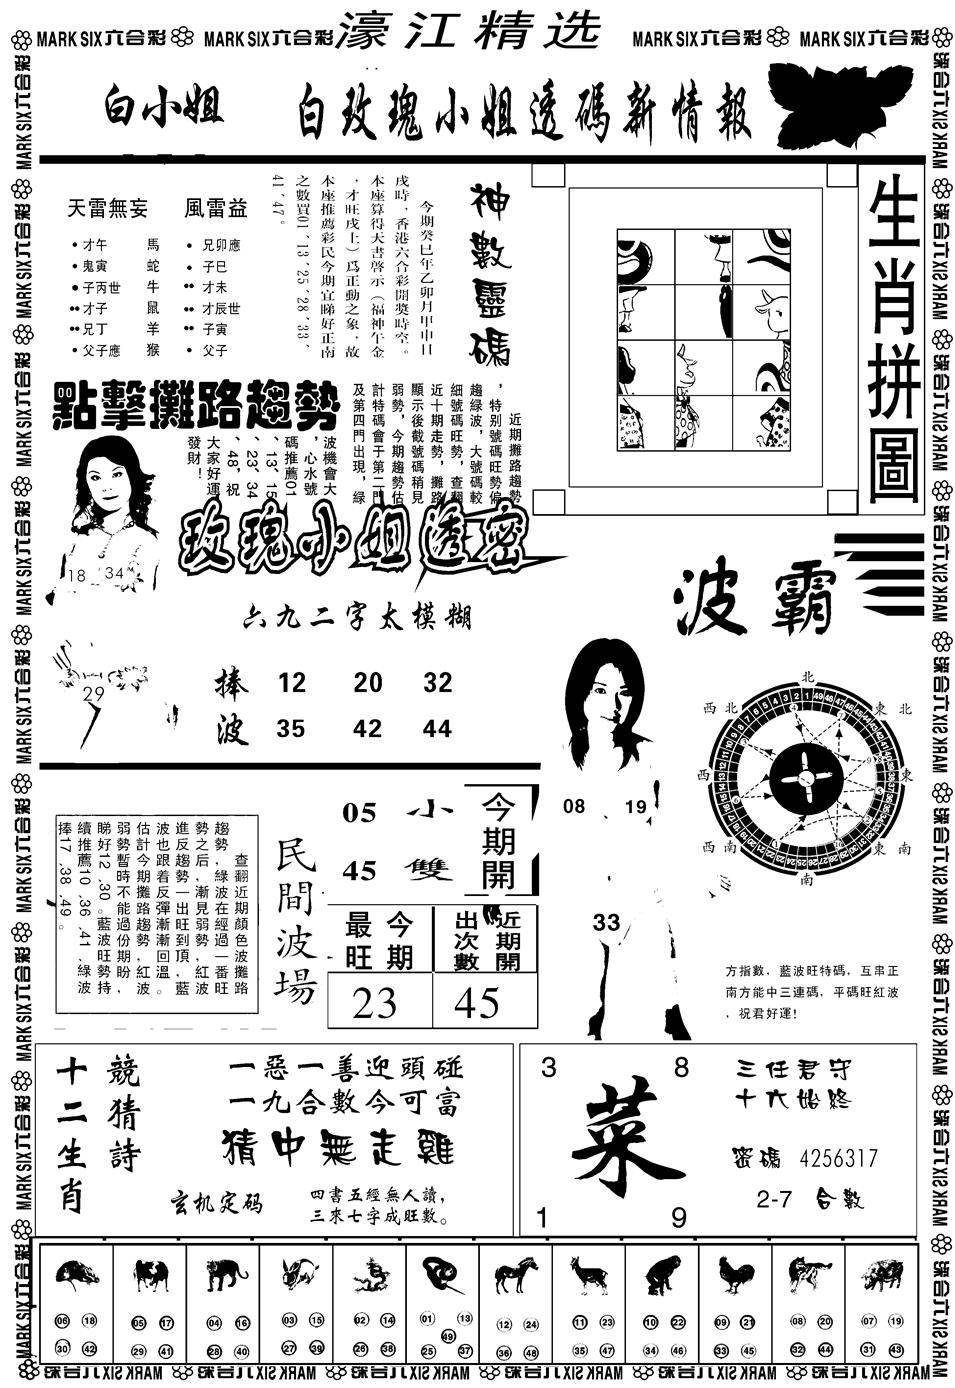 MARK SIX六合彩 MARK SIX六合彩 濠江精选 MARK SIX六合彩 MARK SIX六合彩
白小姐 白玫瑰小姐透碼新情報
天雷無妄 風雷益
才午 馬 兄卯應
鬼寅 蛇 子巳
子丙世 牛 才未
才子 鼠 才辰世
兄丁 羊 子寅
父子應 猴 父子
神數靈碼
今期癸巳年乙卯月甲申日
戌時，香港六合彩開獎時空。
本座算得天書啓示（福神午金
，才旺戌土）爲正動之象，故
本座推薦彩民今期宜睇好正南
之數買01、13、25、28、33、
41、47。
生肖拼圖
點擊攤路趨勢
近期攤路趨勢
，特别號碼旺勢偏
趨綠波，大號碼較
細號碼旺勢，查翻
近十期走勢，攤路
顯示後截號碼稍見
弱勢，今期趨勢估
計特碼會于第二門
及第四門出現，綠
波機會大
，心水號
碼推薦01
、13、15
、23、34
、48，祝
大家好運
發財！
18 34
29
玫瑰小姐透密
六九二字太模糊
捧 12 20 32
波 35 42 44
波霸
08 19
33
北
西北 東北
西 東
西南 東南
南
方指數，藍波旺特碼，互串正
南方能中三連碼，平碼旺紅波
，祝君好運！
查翻近期顏色波攤路
趨勢，綠波在經過一番旺
勢之后，漸見弱勢，紅波
進反趨勢一出旺到頂，藍
波也跟着反彈漸漸回溫。
估計今期攤路趨勢紅波
弱勢暫時不能過份期盼，
睇好12、30。藍波旺勢持
續推薦10、36、41、綠波
捧17、38、49。
民間波場
05 小
45 雙
今期開
今期最旺
近期開出次數
23 45
十二生肖
競猜詩
一惡一善迎頭碰
一九合數今可富
猜中無走雞
玄机定码
四書五經無人讀，
三來七字成旺數。
3 8
菜
1 9
三任君守
十六始終
密碼 4256317
2-7 合數
06 18 30 42
05 17 29 41
04 16 28 40
03 15 27 39
02 14 26 38
01 13 49 25 37
12 24 36 48
11 23 35 47
10 22 34 46
09 21 33 45
08 20 32 44
07 19 31 43